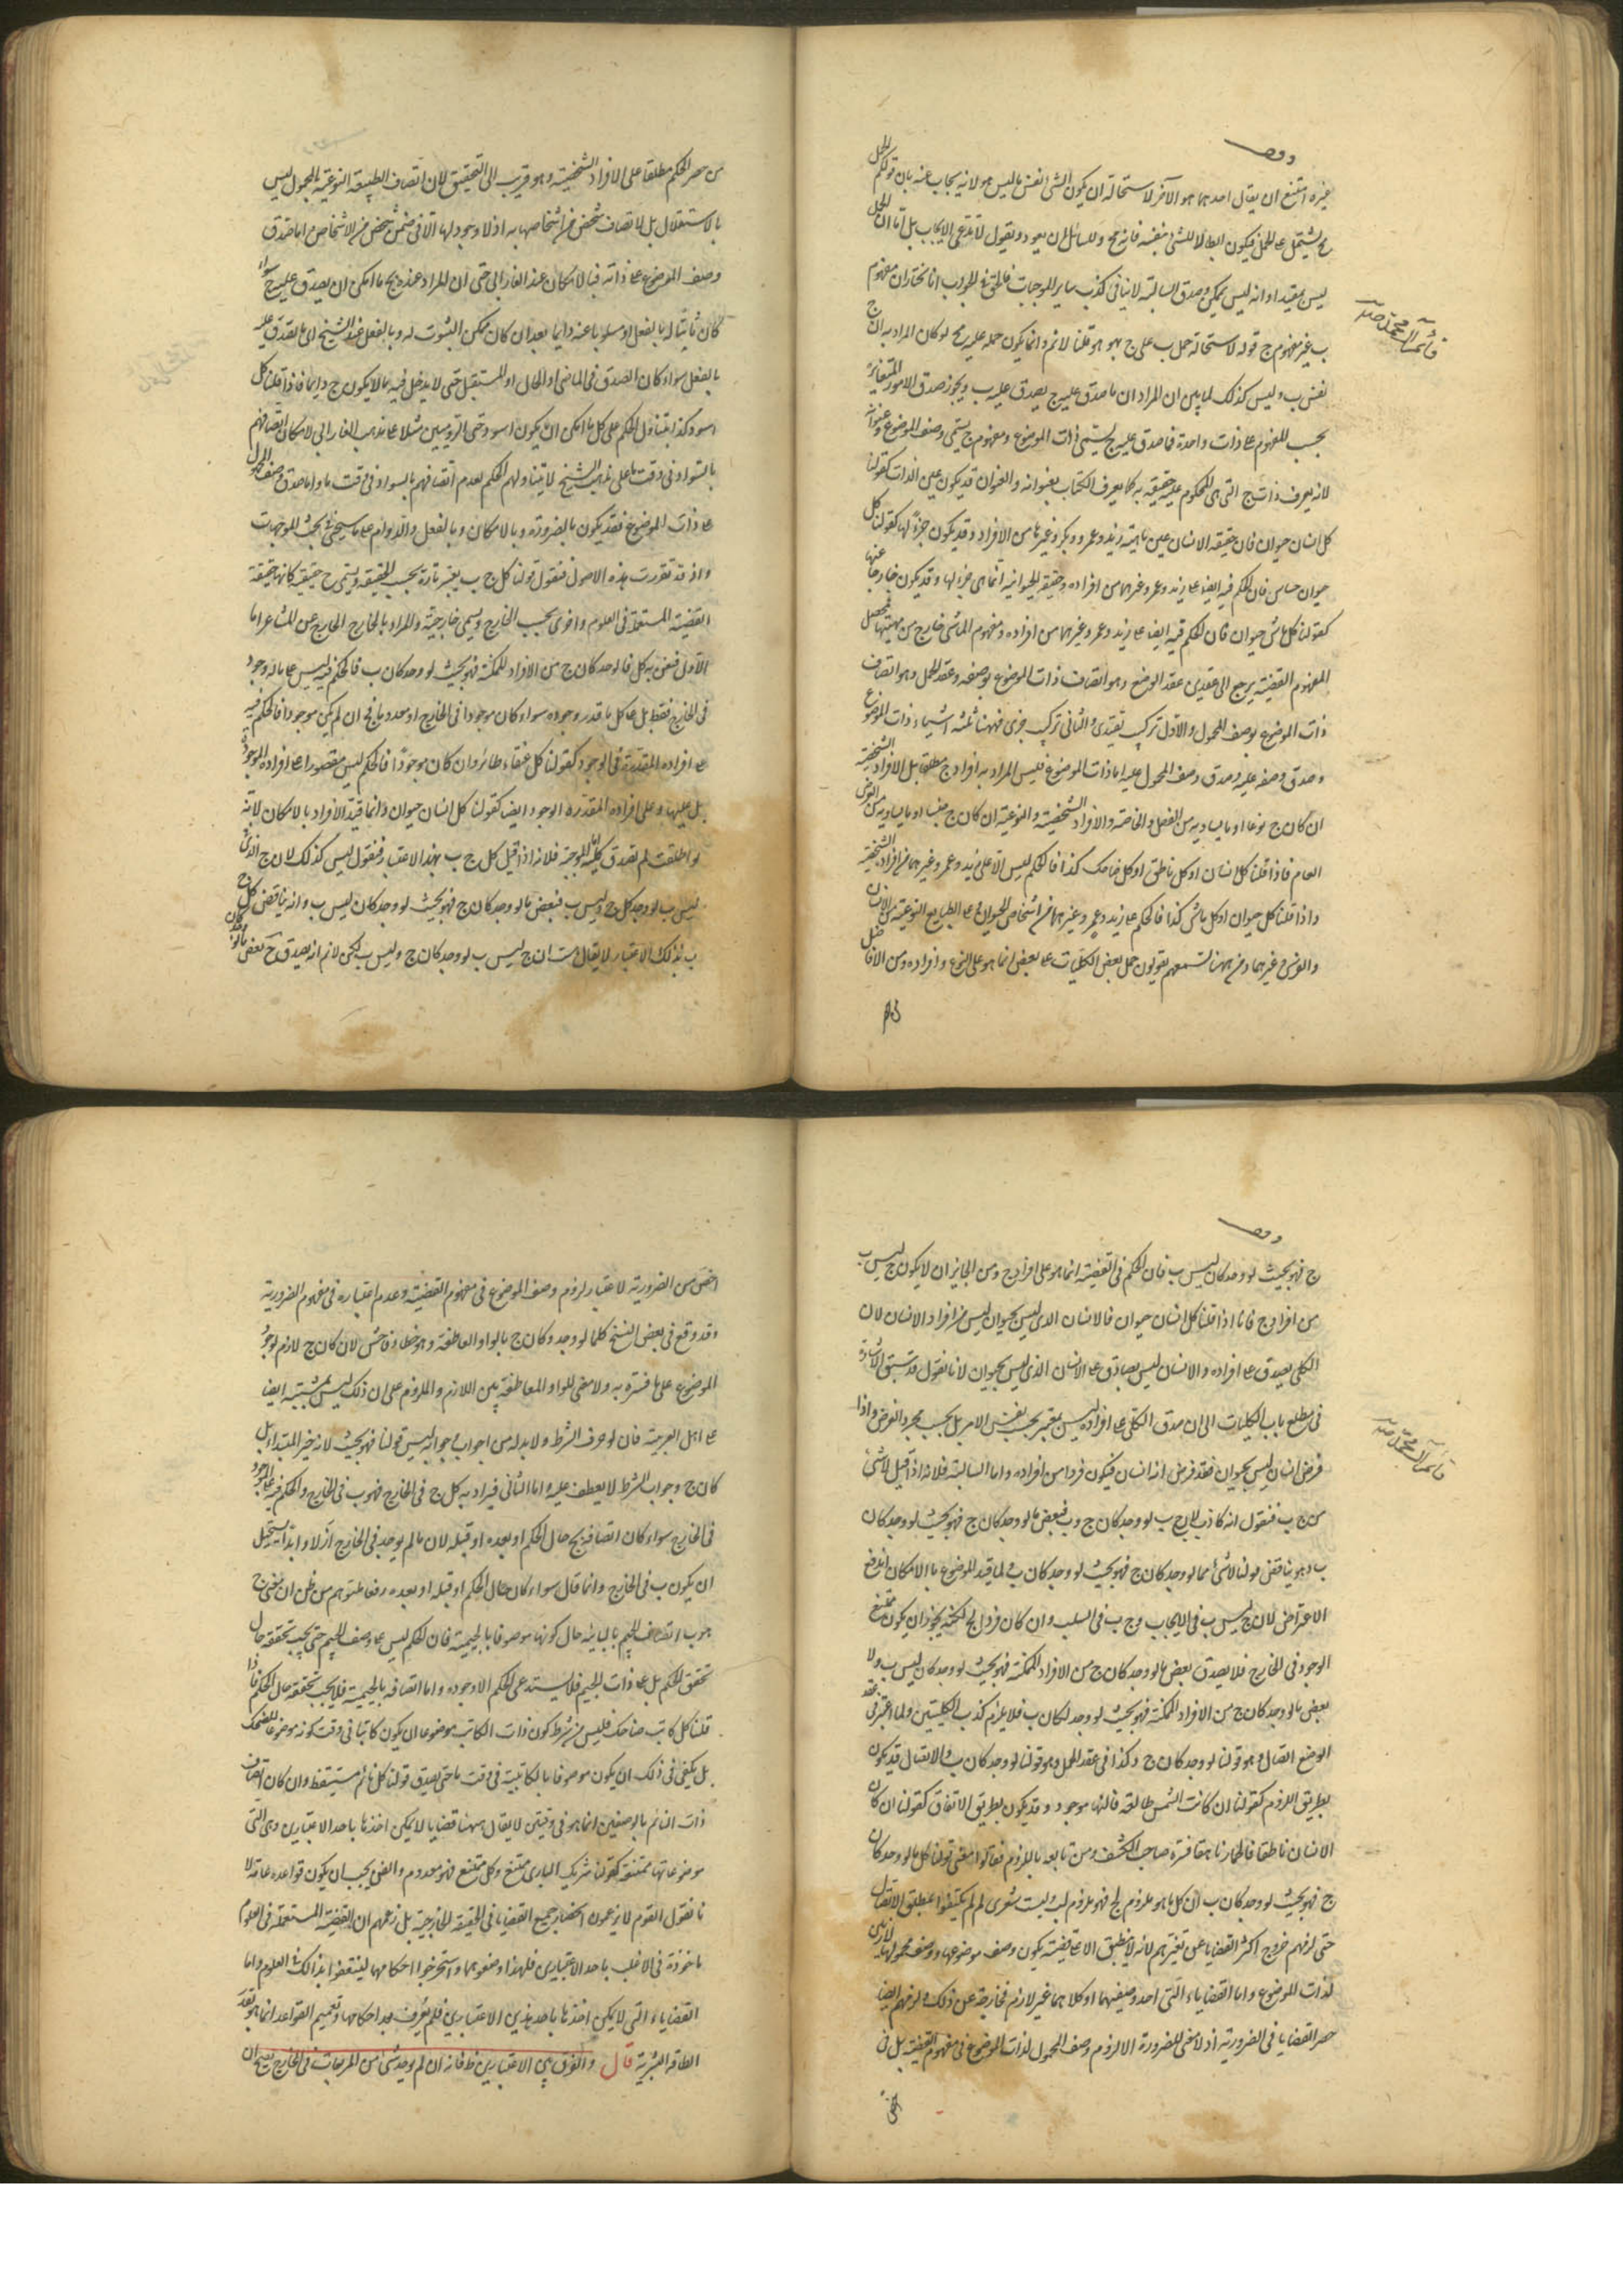 وقف
غيره امتنع ان يقال احدهما هو الآخر لاستحالة ان يكون الشئ نفس ما ليس هو لانه يجاب عنه بان قولكم الحمل
مح يشتمل على الحمل فيكون ابطالا للشئ بنفسه فانه مح وللسائل ان يعود ويقول لا ندعى الايجاب بل اما ان الحمل
ليس بمفيد او انه ليس بممكن وصدق السالبة لا ينافى كذب ساير الموجبات فالحق فى الجواب انا نختار ان مفهوم
ب غير مفهوم ج قوله لاستحالة حمل ب على ج بهو هو قلنا لانم وانما يكون حمله عليه مح لو كان المراد به ان ج
نفس ب وليس كذلك لما تبين ان المراد ان ما صدق عليه ج يصدق عليه ب ويجوز صدق الامور المتغايرة
بحسب المفهوم على ذات واحدة فما صدق عليه ج يسمى ذات الموضوع ومفهوم ج يسمى وصف الموضوع وعنوانه
لانه يعرف ذات ج التى هى المحكوم عليه حقيقة به كما يعرف الكتاب بعنوانه والعنوان قد يكون عين الذات كقولنا
كل انسان حيوان فان حقيقة الانسان عين ماهية زيد وعمرو وبكر وغيرها من الافراد وقد يكون جزءا لها كقولنا كل
حيوان حساس فان الحكم فيه ايضا على زيد وعمرو وغيرهما من افراده وحقيقة الحيوانية انما هى جزء لها وقد يكون خارجا عنها
كقولنا كل ماش حيوان فان الحكم فيه ايضا على زيد وعمرو وغيرهما من افراده ومفهوم الماشى خارج من مهيتها فمحصل
المفهوم القضية يرجع الى عقدين عقد الوضع وهو اتصاف ذات الموضوع بوصفه وعقد الحمل وهو اتصاف
ذات الموضوع بوصف المحمول والاول تركيب تقييدى والثانى تركيب خبرى فههنا ثلثة اشياء ذات الموضوع
وصدق وصفه عليه وصدق وصف المحمول عليه اما ذات الموضوع فليس المراد به افراد ج مطلقا بل الافراد الشخصية
ان كان ج نوعا او ما يساويه من الفصل والخاصة والافراد الشخصية والنوعية ان كان ج جنسا او ما يساويه من العرض
العام فاذا قلنا كل انسان او كل ناطق او كل ضاحك كذا فالحكم ليس الا على زيد وعمرو وغيرهما من افراده الشخصية
واذا قلنا كل حيوان او كل ماش كذا فالحكم على زيد وعمرو وغيرهما من اشخاص الحيوان وعلى الطبايع النوعية من الانسان
والفرس وغيرهما ومن ههنا تسمعهم يقولون حمل بعض الكليات على بعض انما هو على النوع وافراده ومن الافاضل
من حصر الحكم مطلقا على الافراد الشخصية وهو قريب الى التحقيق لان اتصاف الطبيعة النوعية بالمحمول ليس
بالاستقلال بل لاتصاف شخص من اشخاصها به اذ لا وجود لها الا فى ضمن شخص من الاشخاص واما صدق
وصف الموضوع على ذاته فبالامكان عند الفارابى حتى ان المراد عنده بج ما امكن ان يصدق عليه ج سواء
كان ثابتا له بالفعل او مسلوبا عنه دايما بعد ان كان ممكن الثبوت له وبالفعل عند الشيخ اى ما يصدق عليه ج
بالفعل سواء كان الصدق فى الماضى او الحال او المستقبل حتى لا يدخل فيه ما لا يكون ج دايما فاذا قلنا كل
اسود كذا يتناول الحكم على كل ما امكن ان يكون اسود حتى الروميين مثلا على مذهب الفارابى لامكان اتصافهم
بالسواد فى وقت ما وعلى مذهب الشيخ لا يتناولهم الحكم لعدم اتصافهم بالسواد فى وقت ما واما صدق وصف المحمول
على ذات الموضوع فقد يكون بالضرورة وبالامكان وبالفعل والدوام على ما سيجئ فى بحث الموجهات
واذ قد تقررت هذه الاصول فنقول قولنا كل ج ب يعتبر تارة بحسب الحقيقة ويسمى ح حقيقية كانها حقيقة
القضية المستعملة فى العلوم واخرى بحسب الخارج ويسمى خارجية والمراد بالخارج الخارج عن المشاعر اما
الاول فنعنى به كل ما لو وجد كان ج من الافراد الممكنة فهو بحيث لو وجد كان ب فالحكم فيه ليس على ما له وجود
فى الخارج فقط بل على كل ما قدر وجوده سواء كان موجودا فى الخارج او معدوما فح ان لم يكن موجودا فالحكم فيه
على افراده المقدرة الوجود كقولنا كل عنقاء طائر وان كان موجودا فالحكم ليس مقصورا على افراده الموجودة
بل عليها وعلى افراده المقدرة الوجود ايضا كقولنا كل انسان حيوان وانما قيد الافراد بالامكان لانه
لو اطلقت لم تصدق كلية اما الموجبة فلانه اذا قيل كل ج ب بهذا الاعتبار فنقول ليس كذلك لان ج الذى
ليس ب لو وجد كان ج وليس ب فبعض ما لو وجد كان ج فهو بحيث لو وجد كان ليس ب وانه يناقض كل ج
ب بذلك الاعتبار لا يقال هب ان ج ليس ب لو وجد كان ج وليس ب لكن لانم انه يصدق ح بعض ما لو وجد كان
ج فهو بحيث لو وجد كان ليس ب فان الحكم فى القضية انما هو على افراد ج ومن الجايز ان لا يكون ج ليس ب
من افراد ج فانا اذا قلنا كل انسان حيوان فالانسان الذى ليس بحيوان ليس من افراد الانسان لان
الكلى يصدق على افراده والانسان ليس بصادق على الانسان الذى ليس بحيوان لانا نقول قد سبق الاشارة
فى مطلع باب الكليات الى ان صدق الكلى على افراده ليس بمعتبر بحسب نفس الامر بل بحسب مجرد الفرض واذا
فرض انسان ليس بحيوان فقد فرض انه انسان فيكون فردا من افراده واما السالبة فلانه اذا قيل لا شئ
من ج ب فنقول انه كاذب لان ج ب لو وجد كان ج وب فبعض ما لو وجد كان ج فهو بحيث لو وجد كان
ب وهو يناقض قولنا لا شئ مما لو وجد كان ج فهو بحيث لو وجد كان ب ولما قيد الموضوع بالامكان اندفع
الاعتراض لان ج ليس ب فى الايجاب وج ب فى السلب وان كان فردا لج لكنه يجوز ان يكون ممتنع
الوجود فى الخارج فلا يصدق بعض ما لو وجد كان ج من الافراد الممكنة فهو بحيث لو وجد كان ليس ب ولا
بعض ما لو وجد كان ج من الافراد الممكنة فهو بحيث لو وجد لكان ب فلا يلزم كذب الكليتين ولما اعتبر فى عقد
الوضع اتصال وهو قولنا لو وجد كان ج وكذا فى عقد الحمل وهو قولنا لو وجد كان ب والاتصال قد يكون
بطريق اللزوم كقولنا ان كانت الشمس طالعة فالنهار موجود وقد يكون بطريق الاتفاق كقولنا ان كان
الانسان ناطقا فالحمار ناهق فسره صاحب الكشف ومن تابعه باللزوم فقالوا معنى قولنا كل ما لو وجد كان
ج فهو بحيث لو وجد كان ب ان كل ما هو ملزوم لج فهو ملزوم لب وليت شعرى لم لم يكتفوا بمطلق الاتصال
حتى لزمهم خروج اكثر القضايا عن تفسيرهم لانه لا ينطبق الا على قضية يكون وصف موضوعها ووصف محمولها لازمين
لذات الموضوع واما القضايا التى احد وصفيها او كلاهما غير لازم فخارجة عن ذلك ولزمهم ايضا
حصر القضايا فى الضرورية اذ لا معنى للضرورة الا لزوم وصف المحمول لذات الموضوع فى مفهوم القضية بل فى
اخص من الضرورية لاعتبار لزوم وصف الموضوع فى مفهوم القضية وعدم اعتباره فى مفهوم الضرورية
وقد وقع فى بعض النسخ كلما لو وجد وكان ج بالواو العاطفة وهو خطاء فاحش لان كان ج لازم لوجود
الموضوع على ما فسره به ولا معنى للواو العاطفة بين اللازم والملزوم على ان ذلك ليس بمشتبه ايضا
على اهل العربية فان لو حرف الشرط ولا بد له من جواب وجوابه ليس قولنا فهو بحيث لانه خبر المبتداء بل
كان ج وجواب الشرط لا يعطف عليه واما الثانى فيراد به كل ج فى الخارج فهو ب فى الخارج والحكم فيه على الموجود
فى الخارج سواء كان اتصافه بج حال الحكم او بعده او قبله لان ما لم يوجد فى الخارج ازلا وابدا يستحيل
ان يكون ب فى الخارج وانما قال سواء كان حال الحكم او قبله او بعده دفعا لتوهم من ظن ان معنى ج
هو ب اتصاف الجيم بالبائية حال كونها موصوفا بالجيمية فان الحكم ليس على وصف الجيم حتى يجب تحققه حال
تحقق الحكم بل على ذات الجيم فلا يستدعى الحكم الا وجوده واما اتصافه بالجيمية فلا يجب تحققه حال الحكم فاذا
قلنا كل كاتب ضاحك فليس من شرط كون ذات الكاتب موضوعا ان يكون كاتبا فى وقت كونه موضوعا للضحك
بل يكفى فى ذلك ان يكون موصوفا بالكاتبية فى وقت ما حتى يصدق قولنا كل نائم مستيقظ وان كان اتصاف
ذات النائم بالوصفين انما هو فى وقتين لا يقال ههنا قضايا لا يمكن اخذها باحد الاعتبارين وهى التى
موضوعاتها ممتنعة كقولنا شريك البارى ممتنع وكل ممتنع فهو معدوم والفن يجب ان يكون قواعده عامة لا
نا نقول القوم لا يزعمون انحصار جميع القضايا فى الحقيقية الخارجية بل زعمهم ان القضية المستعملة فى العلوم
ماخوذة فى الاغلب باحد الاعتبارين فلهذا وضعوهما واستخرجوا احكامهما لينتفعوا بذلك فى العلوم واما
القضايا التى لا يمكن اخذها باحد هذين الاعتبارين فلم يعرف بعد احكامها وتعميم القواعد انما هو بقدر
الطاقة البشرية قال والفرق بين الاعتبارين ظ فانه ان لم يوجد شئ من المربعات فى الخارج يصح ان